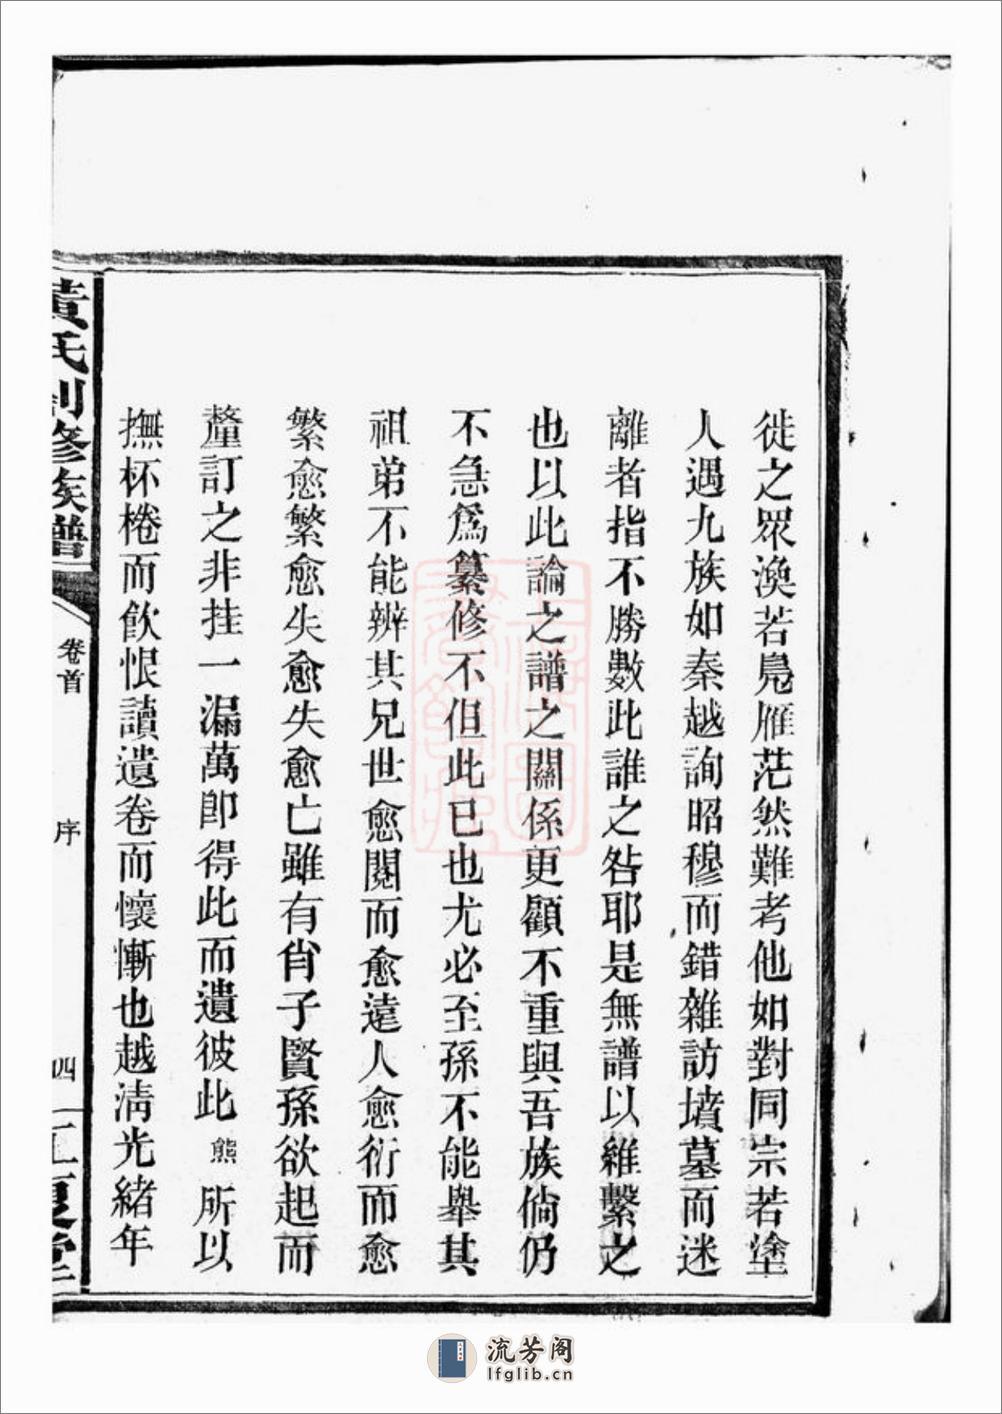 徙之眾渙若鳧雁茫然難考他如對同宗若塗
人遇九族如秦越詢昭穆而錯雜訪墳墓而迷
離者指不勝數此誰之咎耶是無譜以維繫之
也以此論之譜之關係更顧不重與吾族倘仍
不急為纂修不但此已也尤必至孫不能舉其
祖弟不能辨其兄世愈閱而愈遠人愈衍而愈
繁愈繁愈失愈失愈亡雖有肖子賢孫欲起而
釐訂之非挂一漏萬即得此而遺彼此熊所以
撫杯棬而飲恨讀遺卷而懷慚也越清光緒年
黃氏創修族譜
卷首
序
四
江夏堂
流芳阁
lfglib.cn